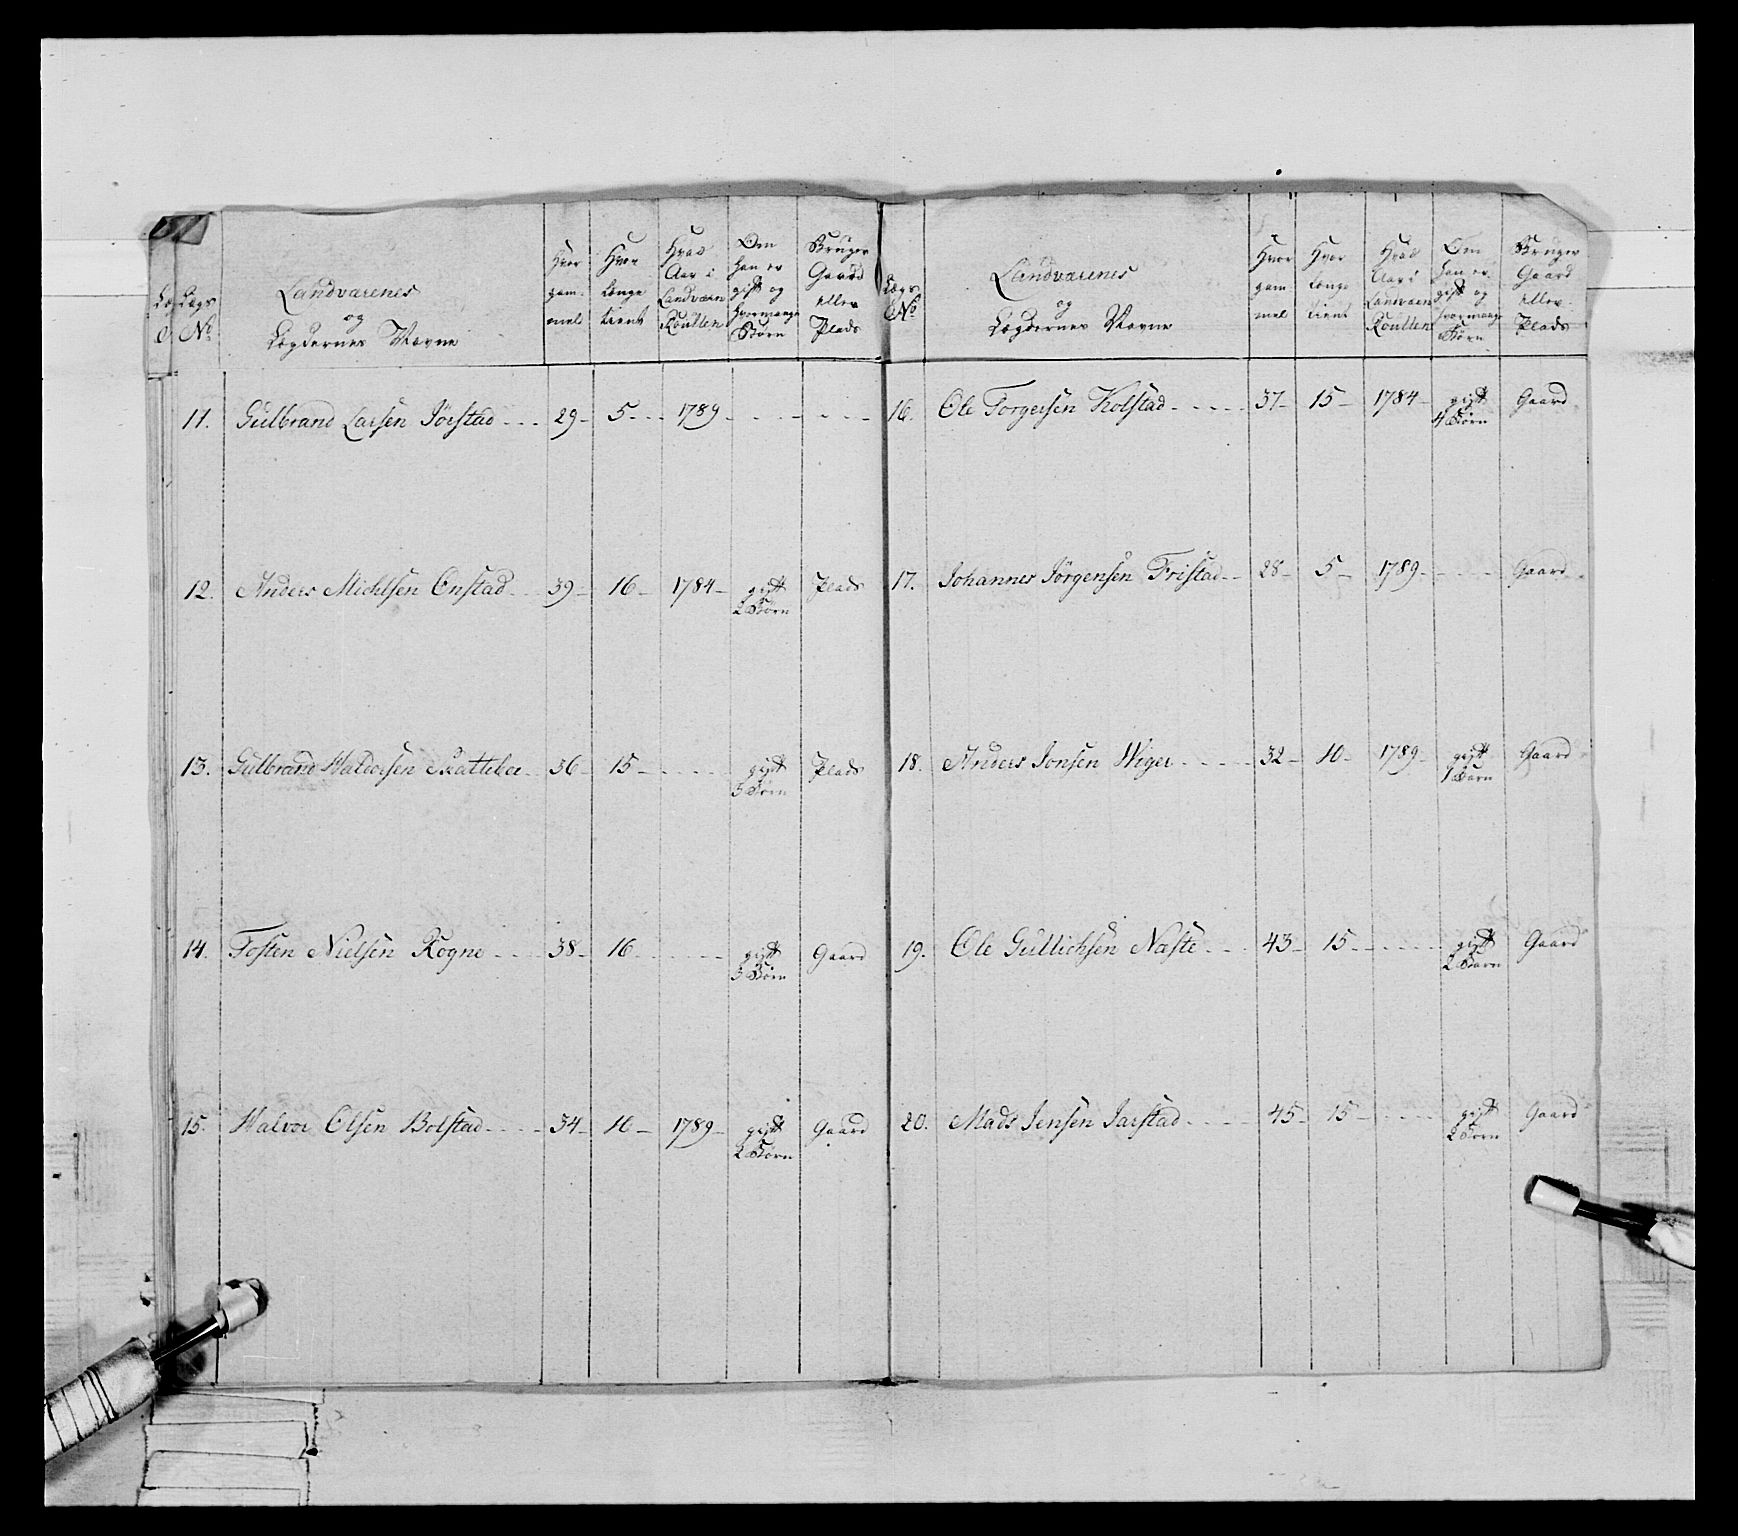 Lægs No
Landværenes og Lægdernes Navne
Hvor gammel
Hvor længe tient
Hvad Aar i Landværn Roullen
Om han er gift og hvormange Børn
Bruger Gaard eller Plads
11. Gulbrand Larsen Jörstad 29 5 1789
12. Anders Michlsen Onstad 39 16 1784 gift 2 Börn Plads
13. Gulbrand Haldorsen 36 15 gift 3 Börn Plads
14. Tosten Nielsen Rogne 38 16 gift 3 Börn Gaard
15. Halvor Olsen Bolstad 34 10 1789 gift 2 Börn Gaard
Lægs No
Landværenes og Lægdernes Navne
Hvor gammel
Hvor længe tient
Hvad Aar i Landværn Roullen
Om han er gift og hvormange Børn
Bruger Gaard eller Plads
16. Ole Torgersen Kolstad 37 15 1784 gift 4 Börn Gaard
17. Johannes Jörgensen Fristad 28 5 1789 Gaard
18. Anders Jonsen Wiger 32 10 1789 gift 1 Barn Gaard
19. Ole Gullichsen Næste 43 15 gift 2 Barn Gaard
20. Mads Jensen Jarstad 45 15 gift 2 Börn Gaard